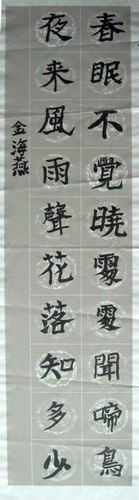 春眠不覺曉處處聞啼鳥
夜来風雨聲花落知多少
金海燕